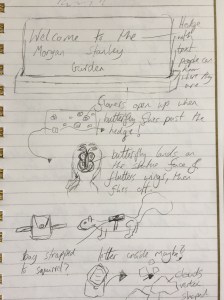 Welcome to the
Morgan Stanley
Garden
Hedge
with
that
people can
flowers open up when
butterfly flies past the
hedge
butterfly lands on
the statue face &
flutters wings, then
flies off.
Bag strapped
to squirrel?
letter inside
clouds
index
shaped